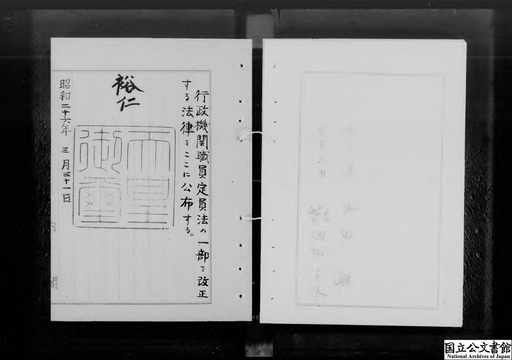 行政機関職員定員法の一部を改正
する法律をここに公布する。
裕仁
天皇
御璽
昭和二十六年三月三十一日
国立公文書館
National Archives of Japan